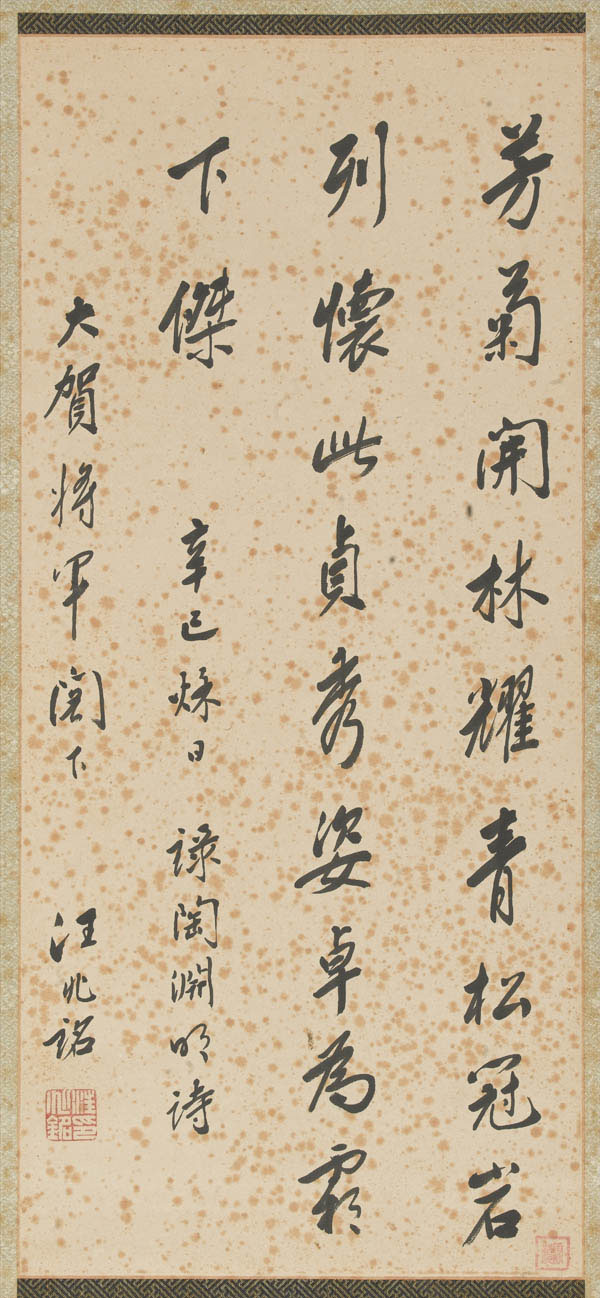 芳菊開林耀青松冠岩
列懷此貞秀姿卓為霜
下傑
辛巳秌日 錄陶淵明詩
大賀將軍閣下
汪兆銘
汪兆銘印